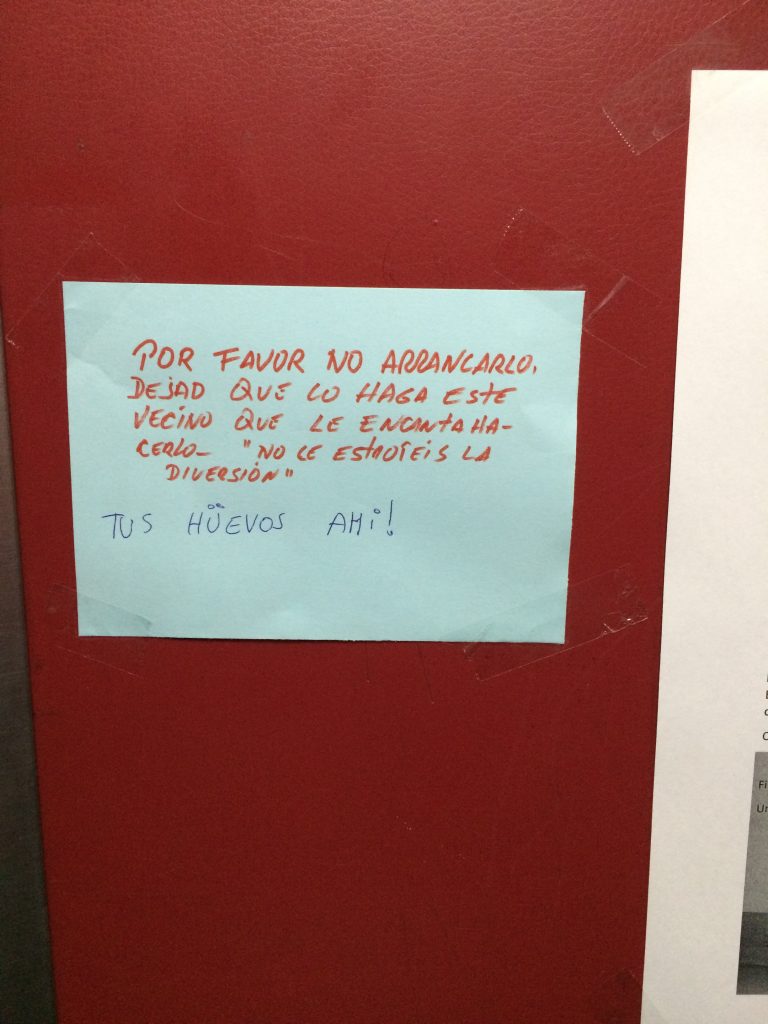 POR FAVOR NO ARRANCARLO.
DEJAD QUE LO HAGA ESTE
VECINO QUE LE ENCANTA HA-
CERLO_ "NO LE ESTROTEIS LA
DIVERSIÓN"
TUS HÜEVOS AMI!
Fi